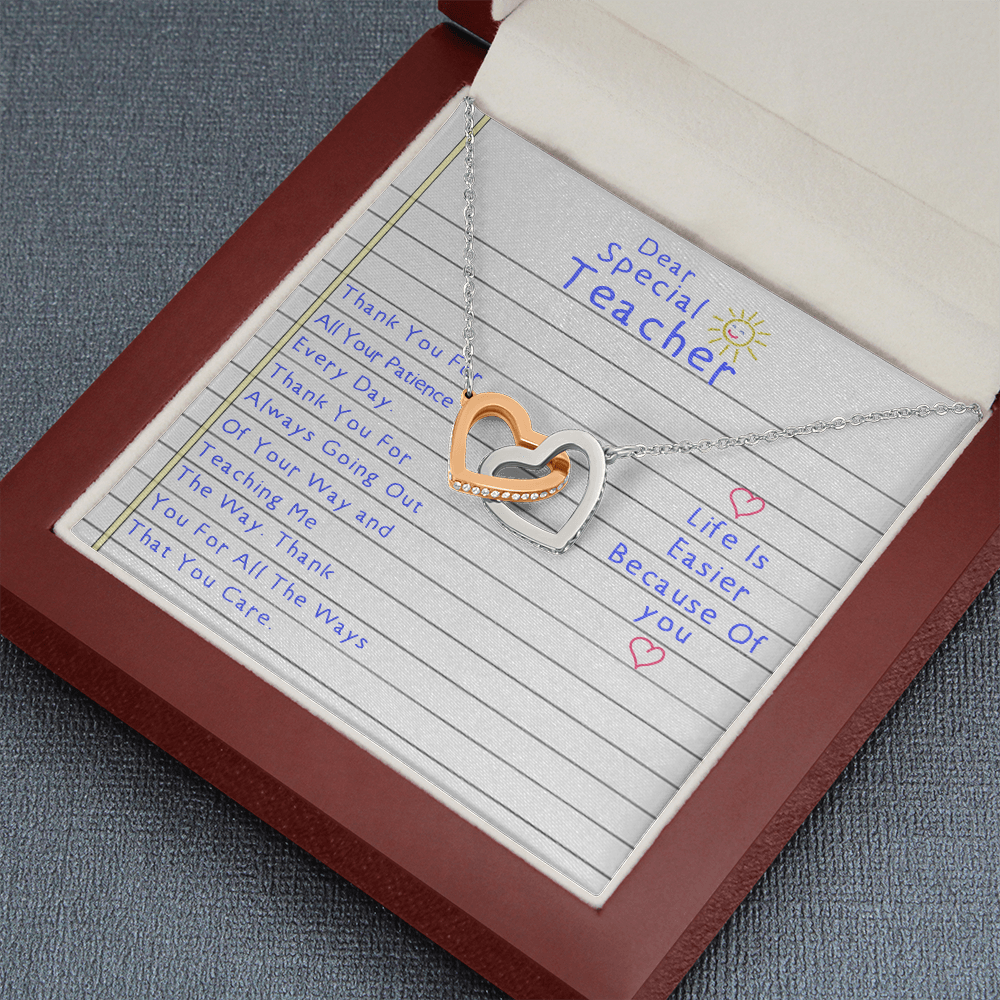 Dear
Special
Teacher
Thank You For
All Your Patience
Every Day.
Thank You For
Always Going Out
Of Your Way and
Teaching Me
The Way. Thank
You For All The Ways
That You Care.
Life Is
Easier
Because Of
you